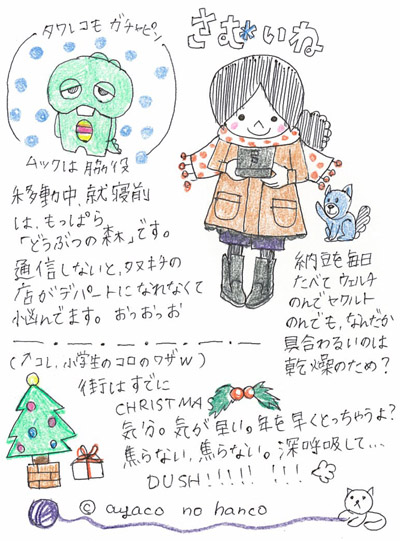 タワレコも ガチャピン
ムックは 脇役
さむ*いね
移動中、就寝前
は、もっぱら
「どうぶつの森」です。
通信しないと、タヌキチの
店がデパートになれなくて
悩んでます。 おっおっお
納豆を毎日
たべて ウェルチ
のんで ヤクルト
のんでも、なんだか
具合わるいのは
乾燥のため?
(↑コレ、小学生のコロのワザw)
街はすでに
CHRISTMA
気分。気が早い。年を早くとっちゃうよ?
焦らない、焦らない。深呼吸して...
DUSH!!!!! !!!
© ayaco no hanco